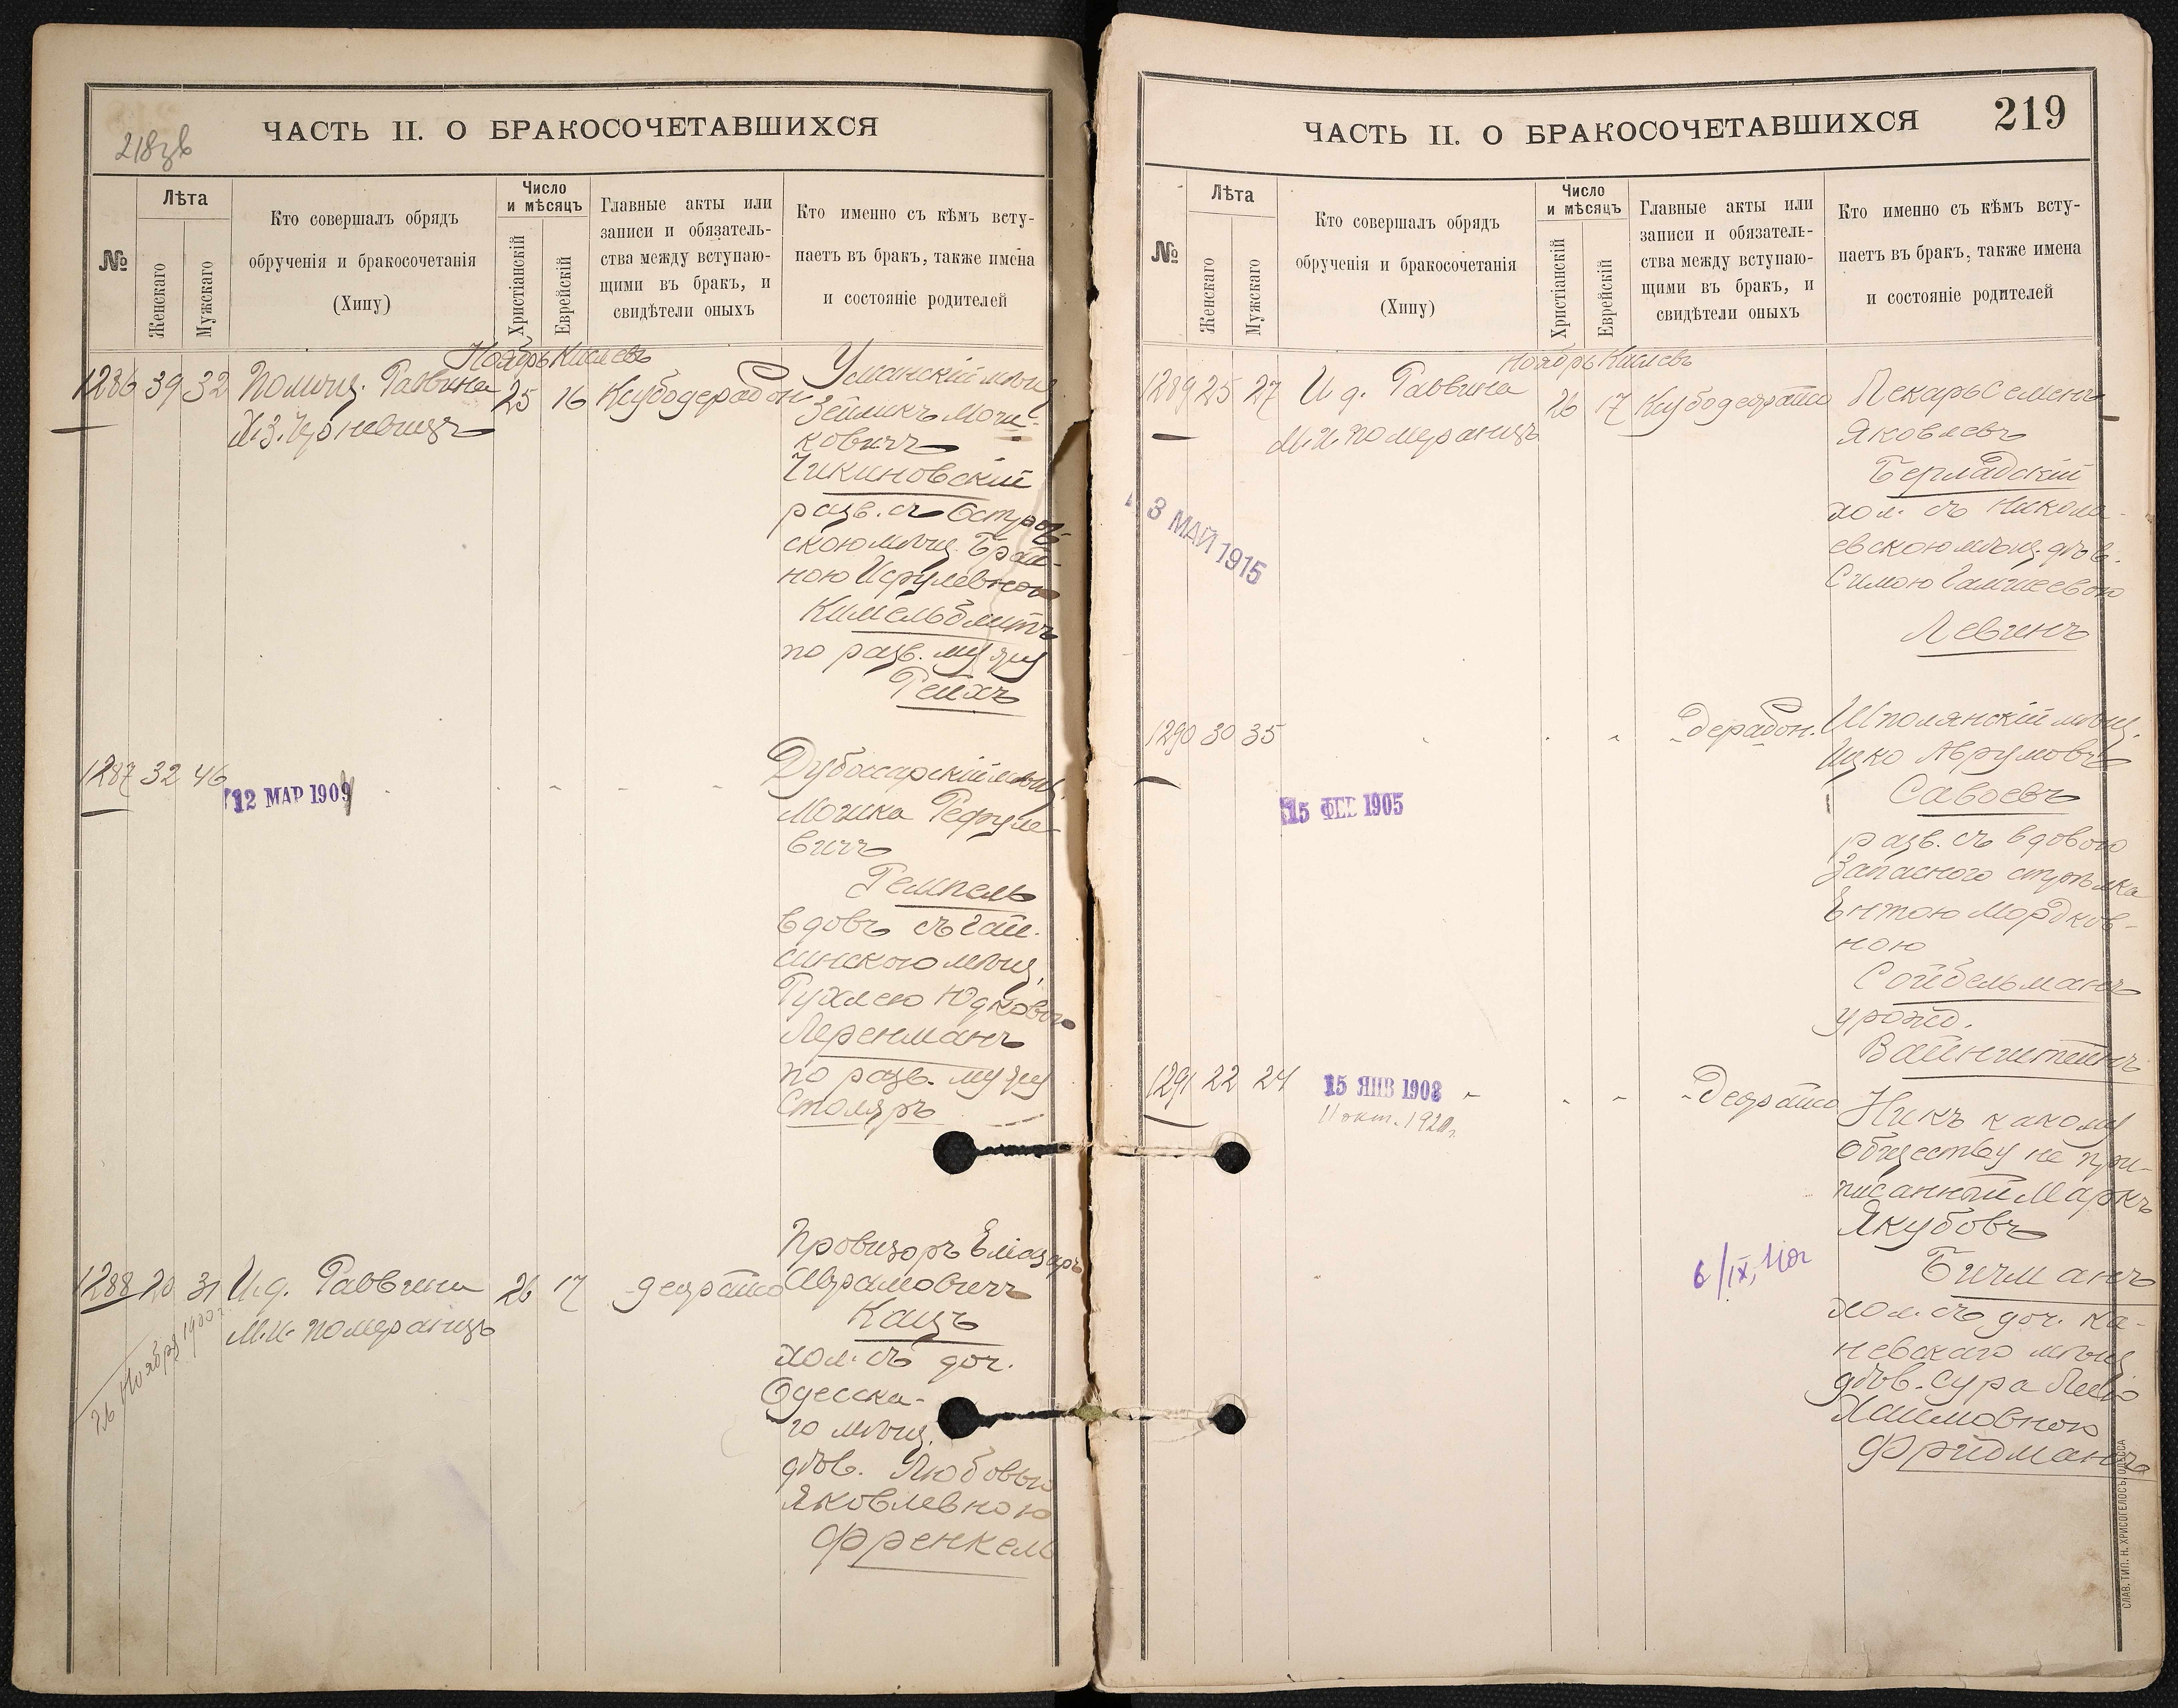 218зв
ЧАСТЬ II. О БРАКОСОЧЕТАВШИХСЯ
№
Лѣта
Женскаго
Мужскаго
Кто совершалъ обрядъ
обрученія и бракосочетанія
(Хипу)
Число
и мѣсяцъ
Христіанскій
Еврейскій
Главные акты или
записи и обязатель-
ства между вступаю-
щими въ бракъ, и
свидѣтели оныхъ
Кто именно съ кѣмъ всту-
паетъ въ бракъ, также имена
и состояніе родителей
Ноябрь Кислевъ
1286 39 32 Помощ. Раввина 25 16
Уманскій мѣщ.
Зейликъ Мош-
ковичъ
Чикиновскій
разв. съ Остро
скою мѣщ. Брай-
ною Исрулевною
Кимельблитъ
по разв. мужу
Рейхъ
1287 32 46
12 МАР 1909
Дубоссарскій мѣщ.
Мошка Рефуле-
вичъ
Гемпель
вдовъ съ Гай-
синскою мѣщ.
Рухлею Юдковою
Леренманъ
по разв. мужу
Столяръ
1288 20 31 И.д. Раввина 26 17
М.И. Померанцъ
26 Ноября 1900 г.
Провизоръ Еліазаръ
Абрамовичъ
Кацъ
хол. съ доч.
Одесска-
го мѣщ.
дѣв. Любовью
Яковлевною
Френкель
ЧАСТЬ II. О БРАКОСОЧЕТАВШИХСЯ
219
№
Лѣта
Женскаго
Мужскаго
Кто совершалъ обрядъ
обрученія и бракосочетанія
(Хипу)
Число
и мѣсяцъ
Христіанскій
Еврейскій
Главные акты или
записи и обязатель-
ства между вступаю-
щими въ бракъ, и
свидѣтели оныхъ
Кто именно съ кѣмъ всту-
паетъ въ бракъ, также имена
и состояніе родителей
Ноябрь Кислевъ
1289 25 27 И.д. Раввина 26 17
М.И. Померанцъ
3 МАЙ 1915
Пекарь Семенъ
Яковлевъ
Берладскій
хол. съ Никола-
евскою мѣщ. дѣв.
Симою
Левинъ
1290 30 35
15 ФЕВ 1905
Шполянскій мѣщ.
Ицко Аврумовъ
Савоевъ
разв. съ вдовою
Запасного стрѣлка
Ентою Мордков-
ною
Сойбельманъ
урожд.
Вайнштейнъ
1291 22 24
15 ЯНВ 1908
11 окт. 1920 г.
6/IX,
Ни къ какому
обществу не при-
писанный Маркъ
Якубовъ
Бичманъ
хол. съ доч. Ка-
невскаго мѣщ.
дѣв. Сура Леею
Хаимовною
Фридманъ
СЛАВ. ТИП. Н. ХРИСОГЕЛОСЪ, ОДЕССА